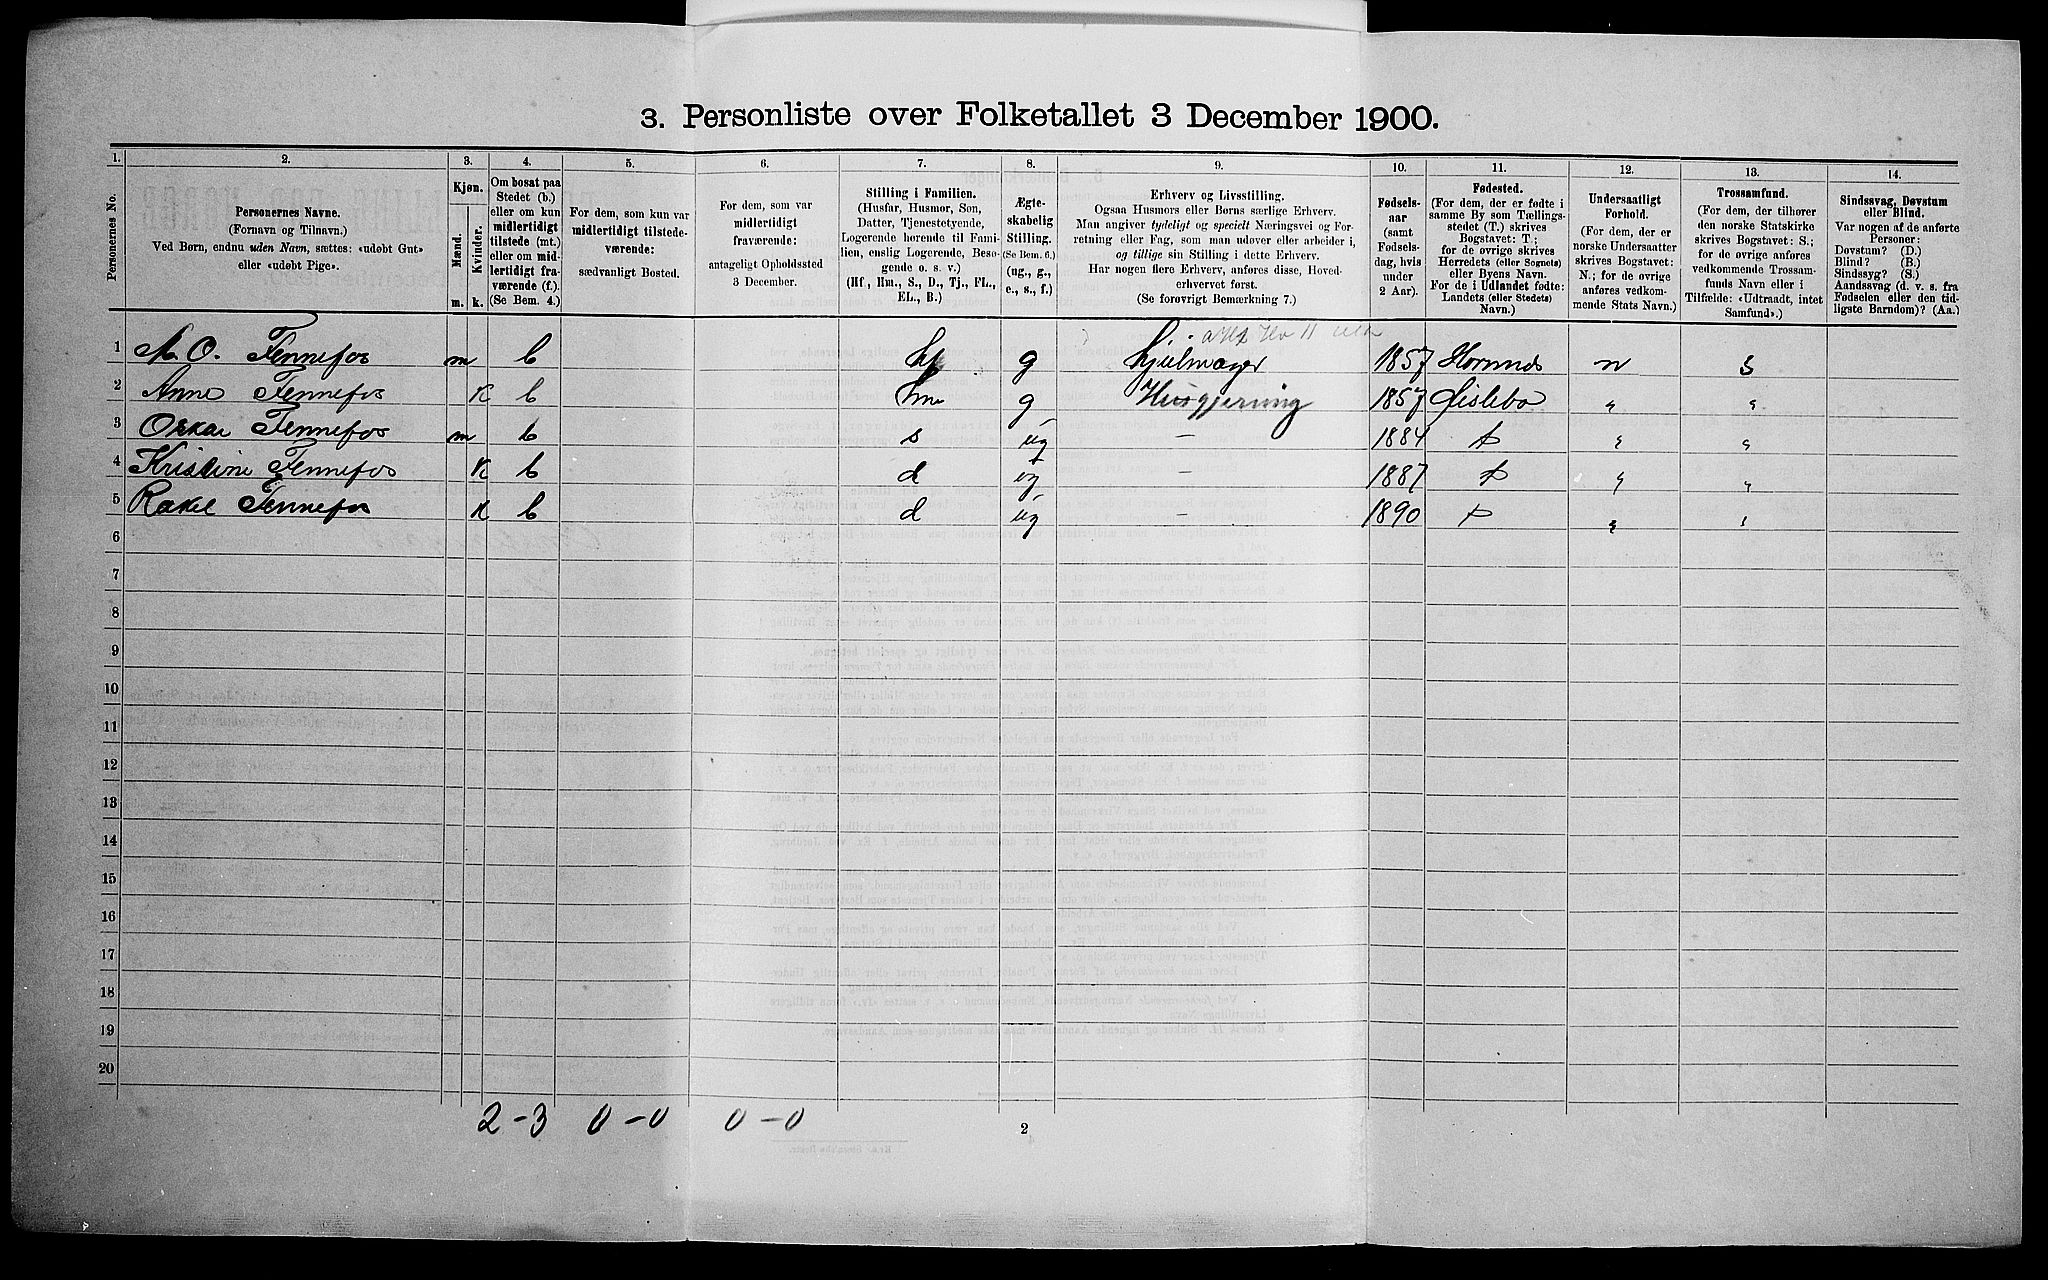 3. Personliste over Folketallet 3 December 1900.
1. 2. 3. 4. 5. 6. 7. 8. 9. 10. 11. 12. 13. 14.
Personernes No.
Personernes Navne.
(Fornavn og Tilnavn.)
Ved Børn, endnu uden Navn, sættes: «udøbt Gut»
eller «udøbt Pige».
Kjøn.
Mænd. Kvinder.
m. k.
Om bosat paa
Stedet (b.)
eller om kun
midlertidigt
tilstede (mt.)
eller om mid-
lertidigt fra-
værende (f.)
(Se Bem. 4.)
For dem, som kun var
midlertidigt tilstede-
værende:
sædvanligt Bosted.
For dem, som var
midlertidigt
fraværende:
antageligt Opholdssted
3 December.
Stilling i Familien.
(Husfar, Husmor, Søn,
Datter, Tjenestetyende,
Logerende hørende til Fami-
lien, enslig Logerende, Besø-
gende o. s. v.)
(Hf, Hm., S., D., Tj., FL.,
EL., B.)
Ægte-
skabelig
Stilling.
(Se Bem. 6.)
(ug., g.,
e., s., f.)
Erhverv og Livsstilling.
Ogsaa Husmors eller Børns særlige Erhverv.
Man angiver tydeligt og specielt Næringsvei og For-
retning eller Fag, som man udøver eller arbeider i,
og tillige sin Stilling i dette Erhverv.
Har nogen flere Erhverv, anføres disse, Hoved-
erhvervet først.
(Se forøvrigt Bemærkning 7.)
Fødsels-
aar
(samt
Fødsels-
dag, hvis
under
2 Aar).
Fødested.
(For dem, der er fødte i
samme By som Tællings-
stedet (T.) skrives
Bogstavet: T.;
for de øvrige skrives
Herredets (eller Sognets)
eller Byens Navn.
For de i Udlandet fødte:
Landets (eller Stedets)
Navn.)
Undersaatligt
Forhold.
(For dem, der er
norske Undersaatter
skrives Bogstavet:
N.; for de øvrige
anføres vedkom-
mende Stats Navn.)
Trossamfund.
(For dem, der tilhører
den norske Statskirke
skrives Bogstavet: S.;
for de øvrige anføres
vedkommende Trossam-
funds Navn eller i
Tilfælde: «Udtraadt, intet
Samfund».)
Sindssvag, Døvstum
eller Blind.
Var nogen af de anførte
Personer:
Døvstum? (D.)
Blind? (B.)
Sindssyg? (S.)
Aandssvag (d. v. s. fra
Fødselen eller den tid-
ligste Barndom)? (Aa.)
1 A. O. Fennefos m b hf g hjulmager 1857 n s
2 Anne Fennefos K b hm g Husgjerning 1857 Øislebø " "
3 Oskar Fennefos m b s ug - 1884 " "
4 Kristine Fennefos K b d ug - 1887 " "
5 Rakel Fennefos K b d ug - 1890 " "
6
7
8
9
10
11
12
13
14
15
16
17
18
19
20
2-3 0-0 0-0
2